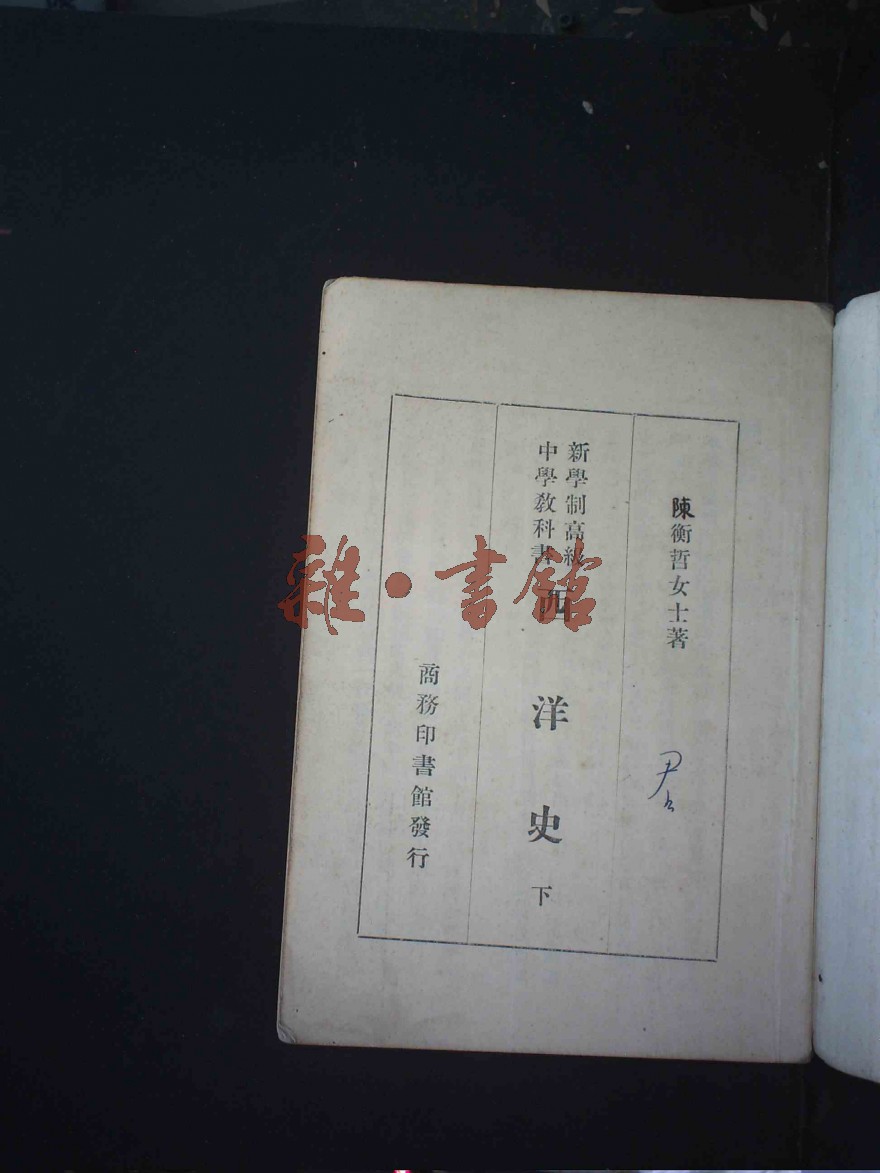 陳衡哲女士著
新學制高級
中學教科書
西洋史
下
商務印書館發行
雜·書館